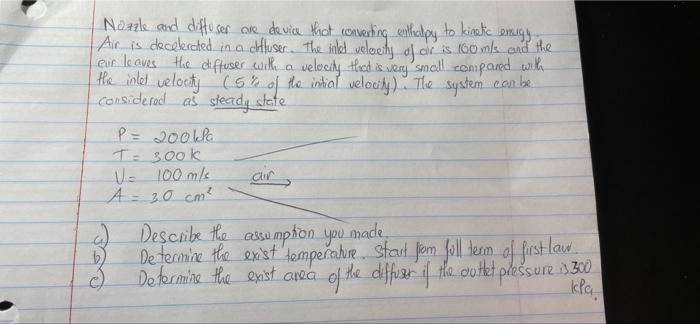 Nozzle and diffuser are device that converting enthalpy to kinetic energy.
Air is decelerated in a diffuser. The inlet velocity of air is 100 m/s and the
air leaves the diffuser with a velocity that is very small compared with
the inlet velocity (5% of the intial velocity). The system can be
considered as steady state
P = 200 kPa
T = 300 k
V = 100 m/s
air
A = 30 cm²
a) Describe the assumption you made.
b) Determine the exist temperature. Start from full term of first law.
c) Determine the exist area of the diffuser if the outlet pressure is 300
kPa.